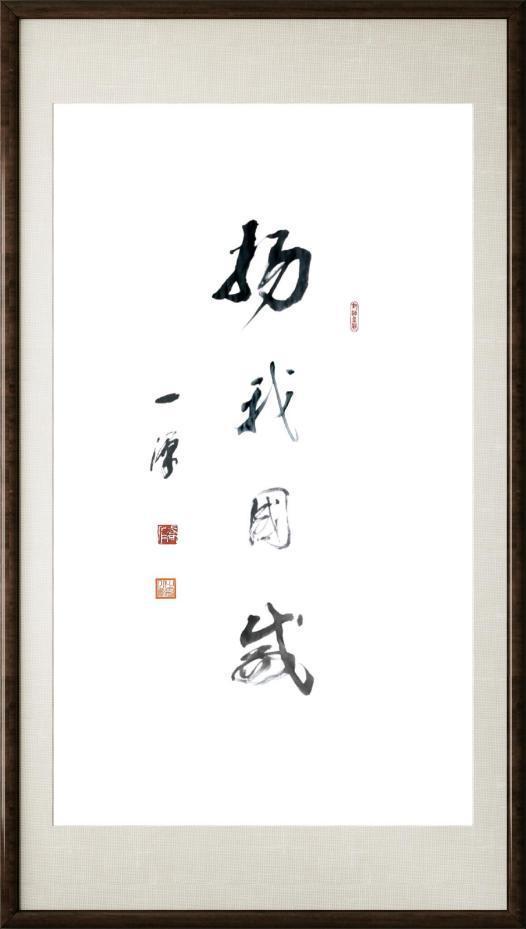 扬我国威
一潭